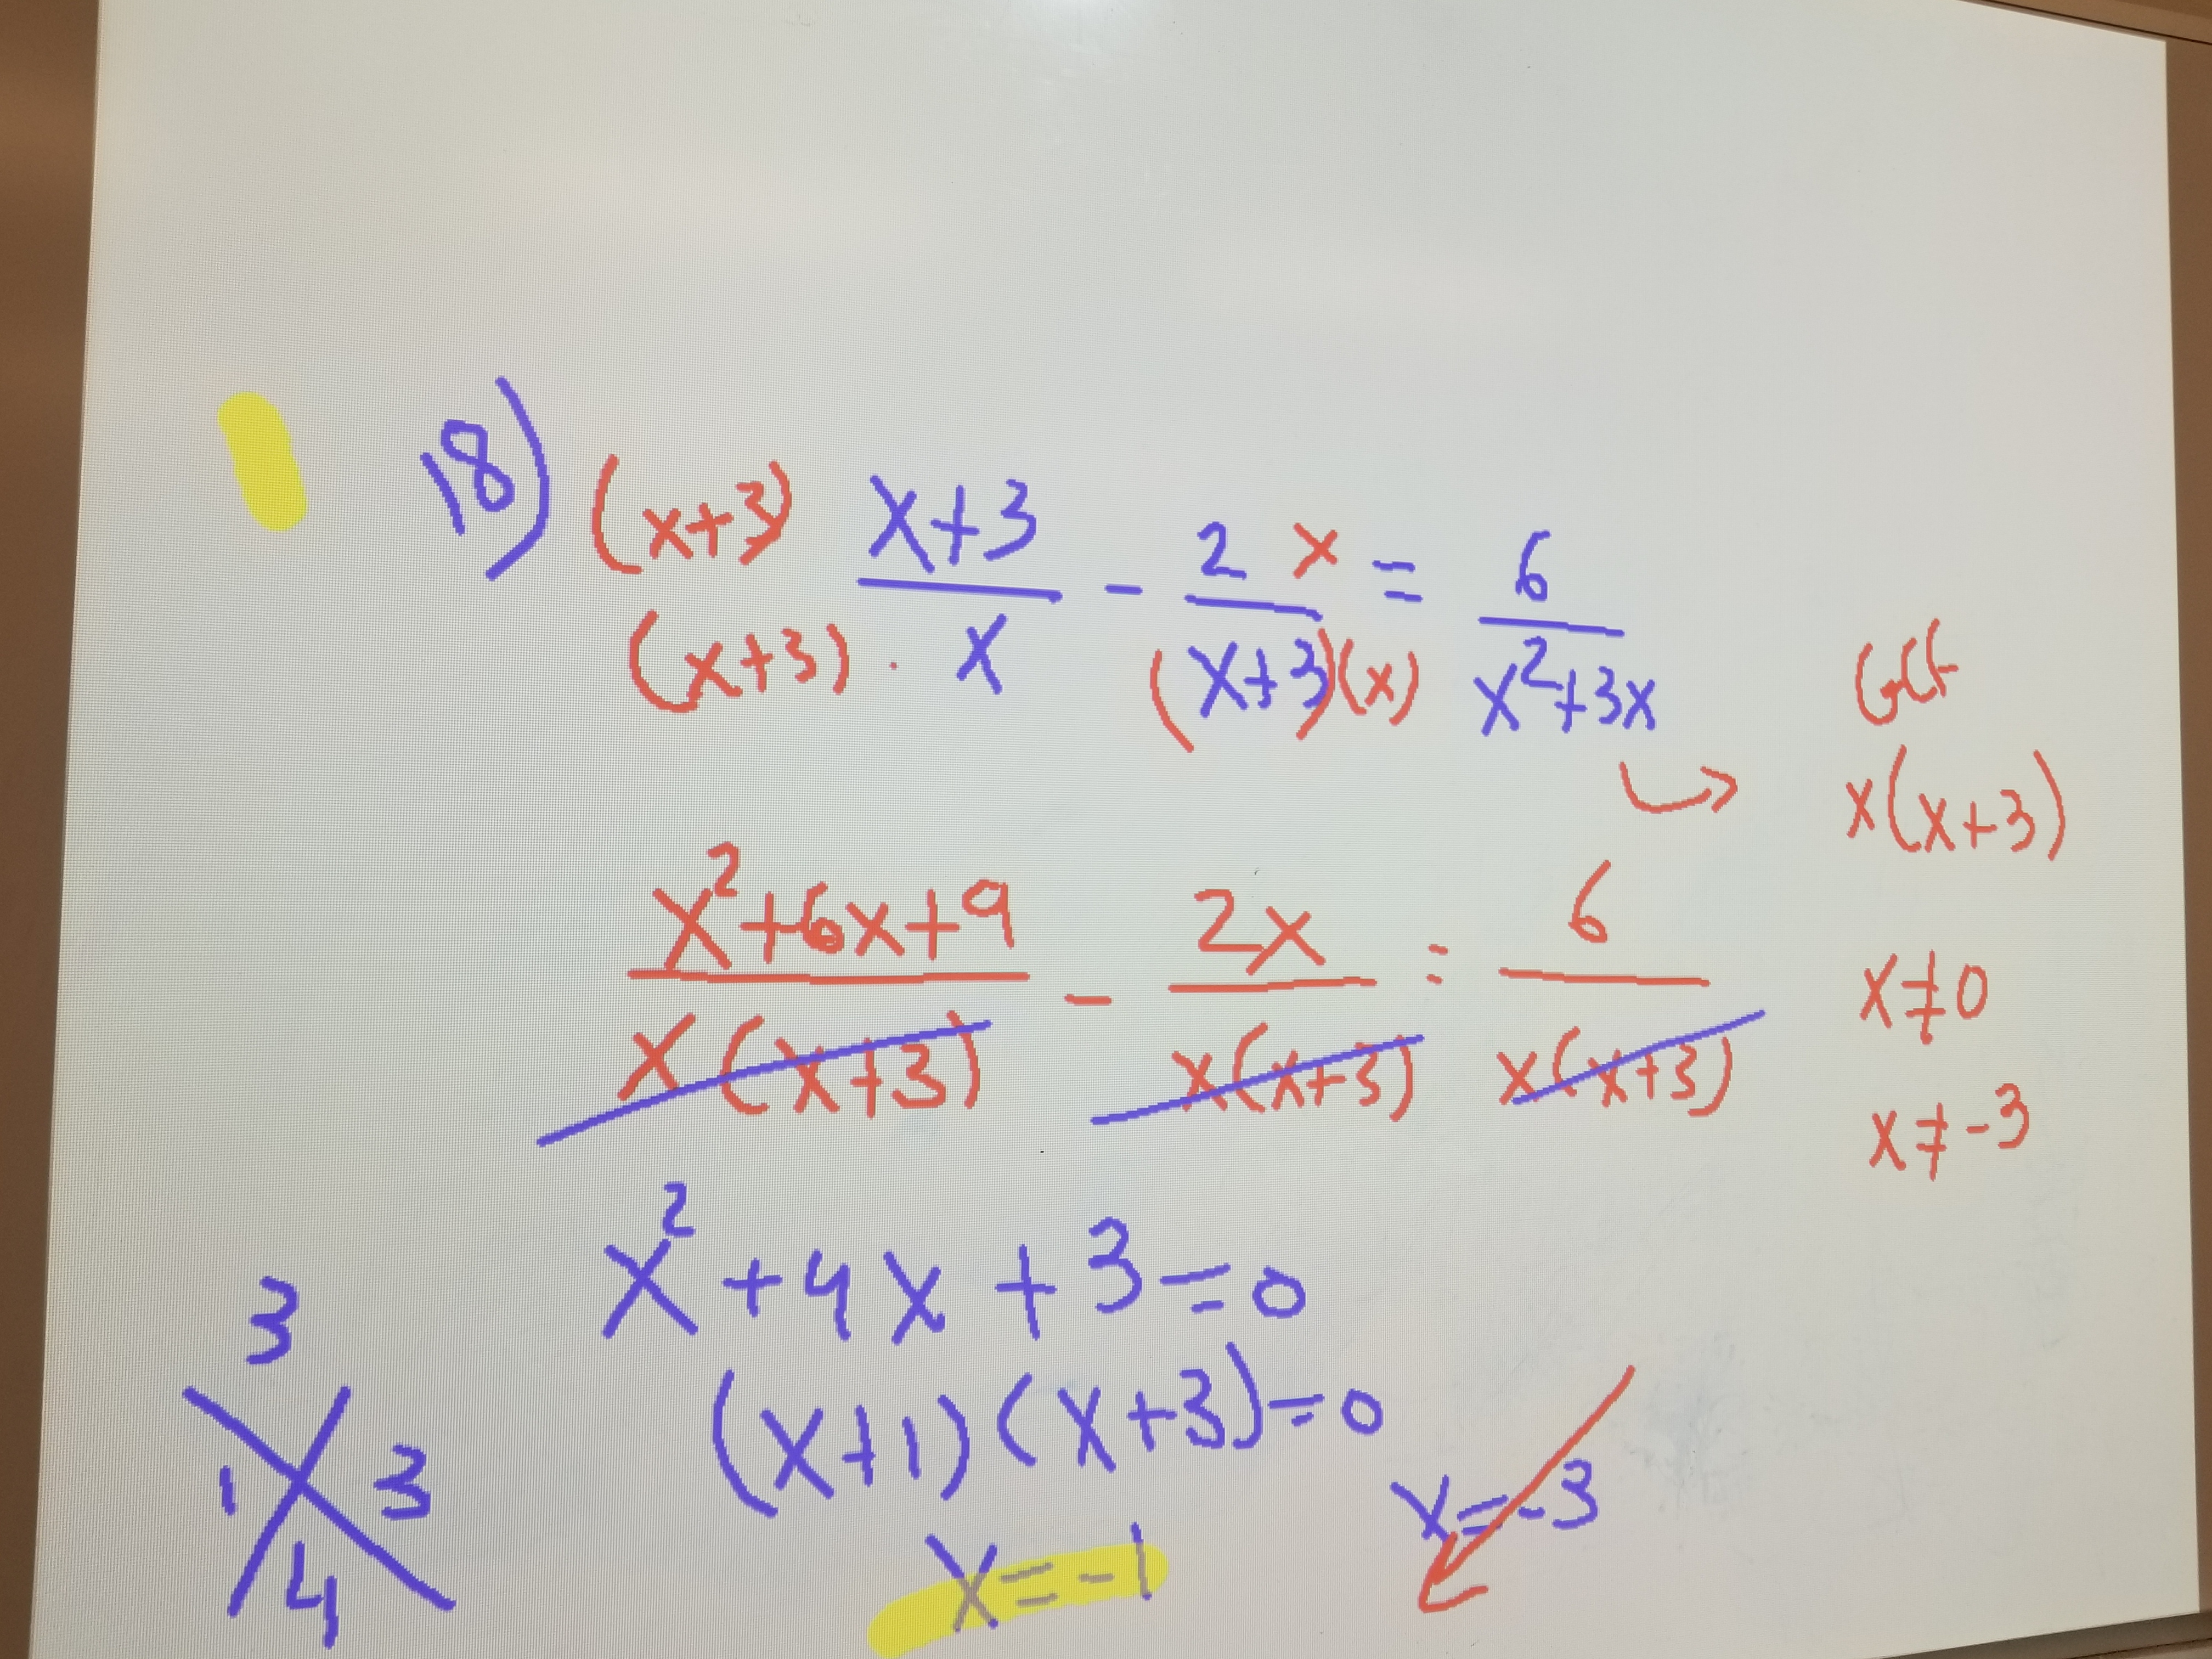 18) (x+3) x+3 / (x+3) · x - 2 x / (x+3)(x) = 6 / x²+3x
GCF
x(x+3)
x²+6x+9 / x(x+3) - 2x / x(x+3) = 6 / x(x+3)
x≠0
x≠-3
x²+4x+3=0
(x+1)(x+3)=0
x=-1 x=-3
3
1 3
4